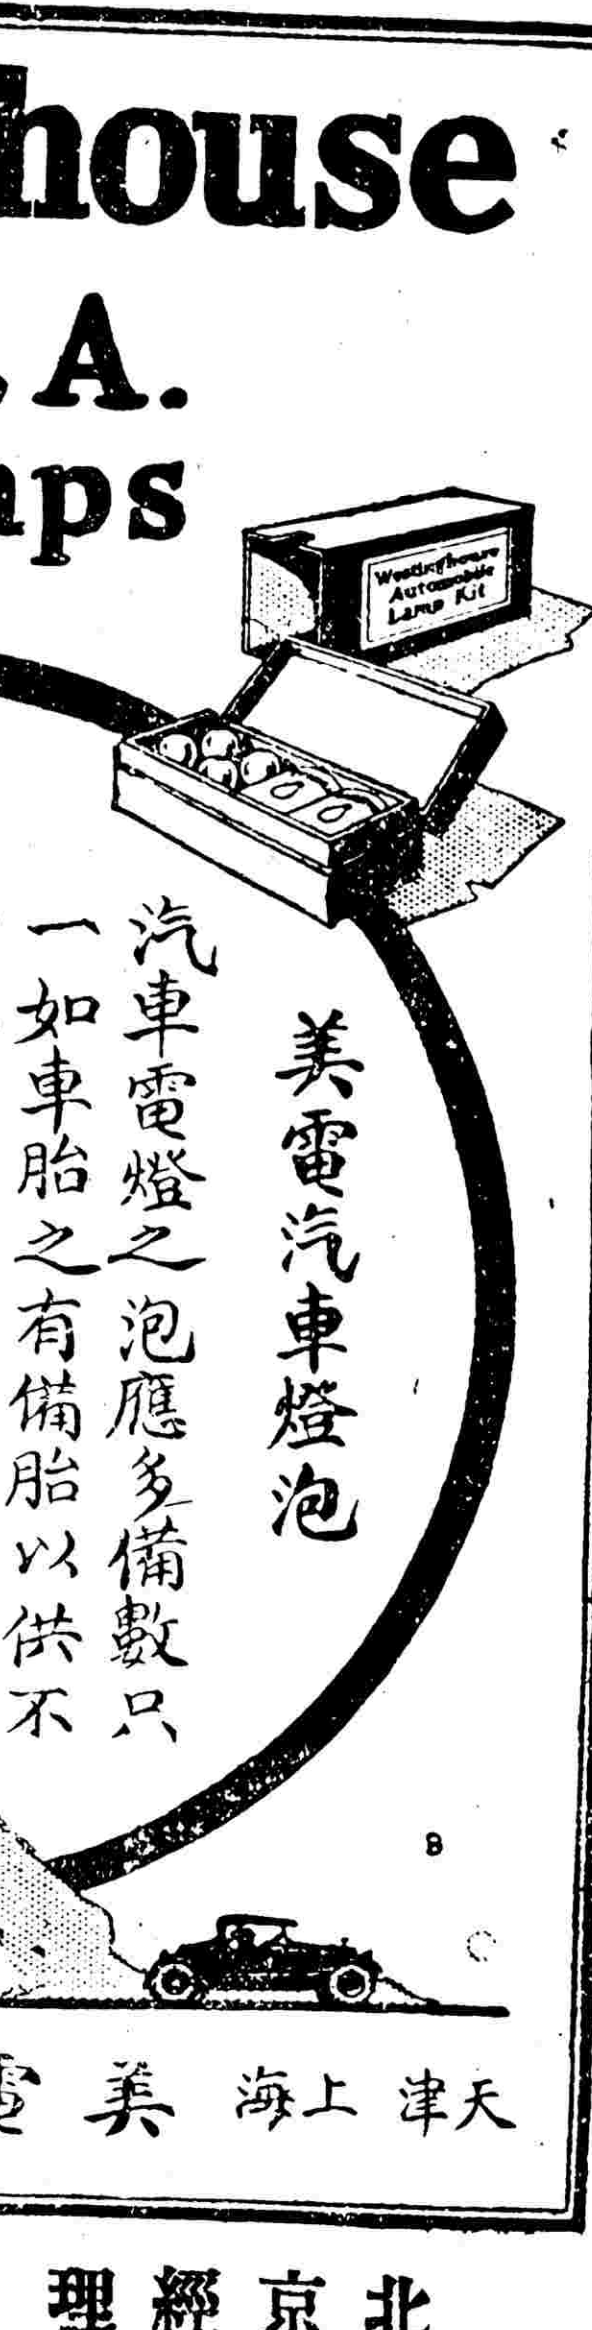 house
A.
ps
Westinghouse
Automobile
Lamp Kit
美電汽車燈泡
汽車電燈之泡應多備數只
一如車胎之有備胎以供不
B
天津 上海 美電
北京經理